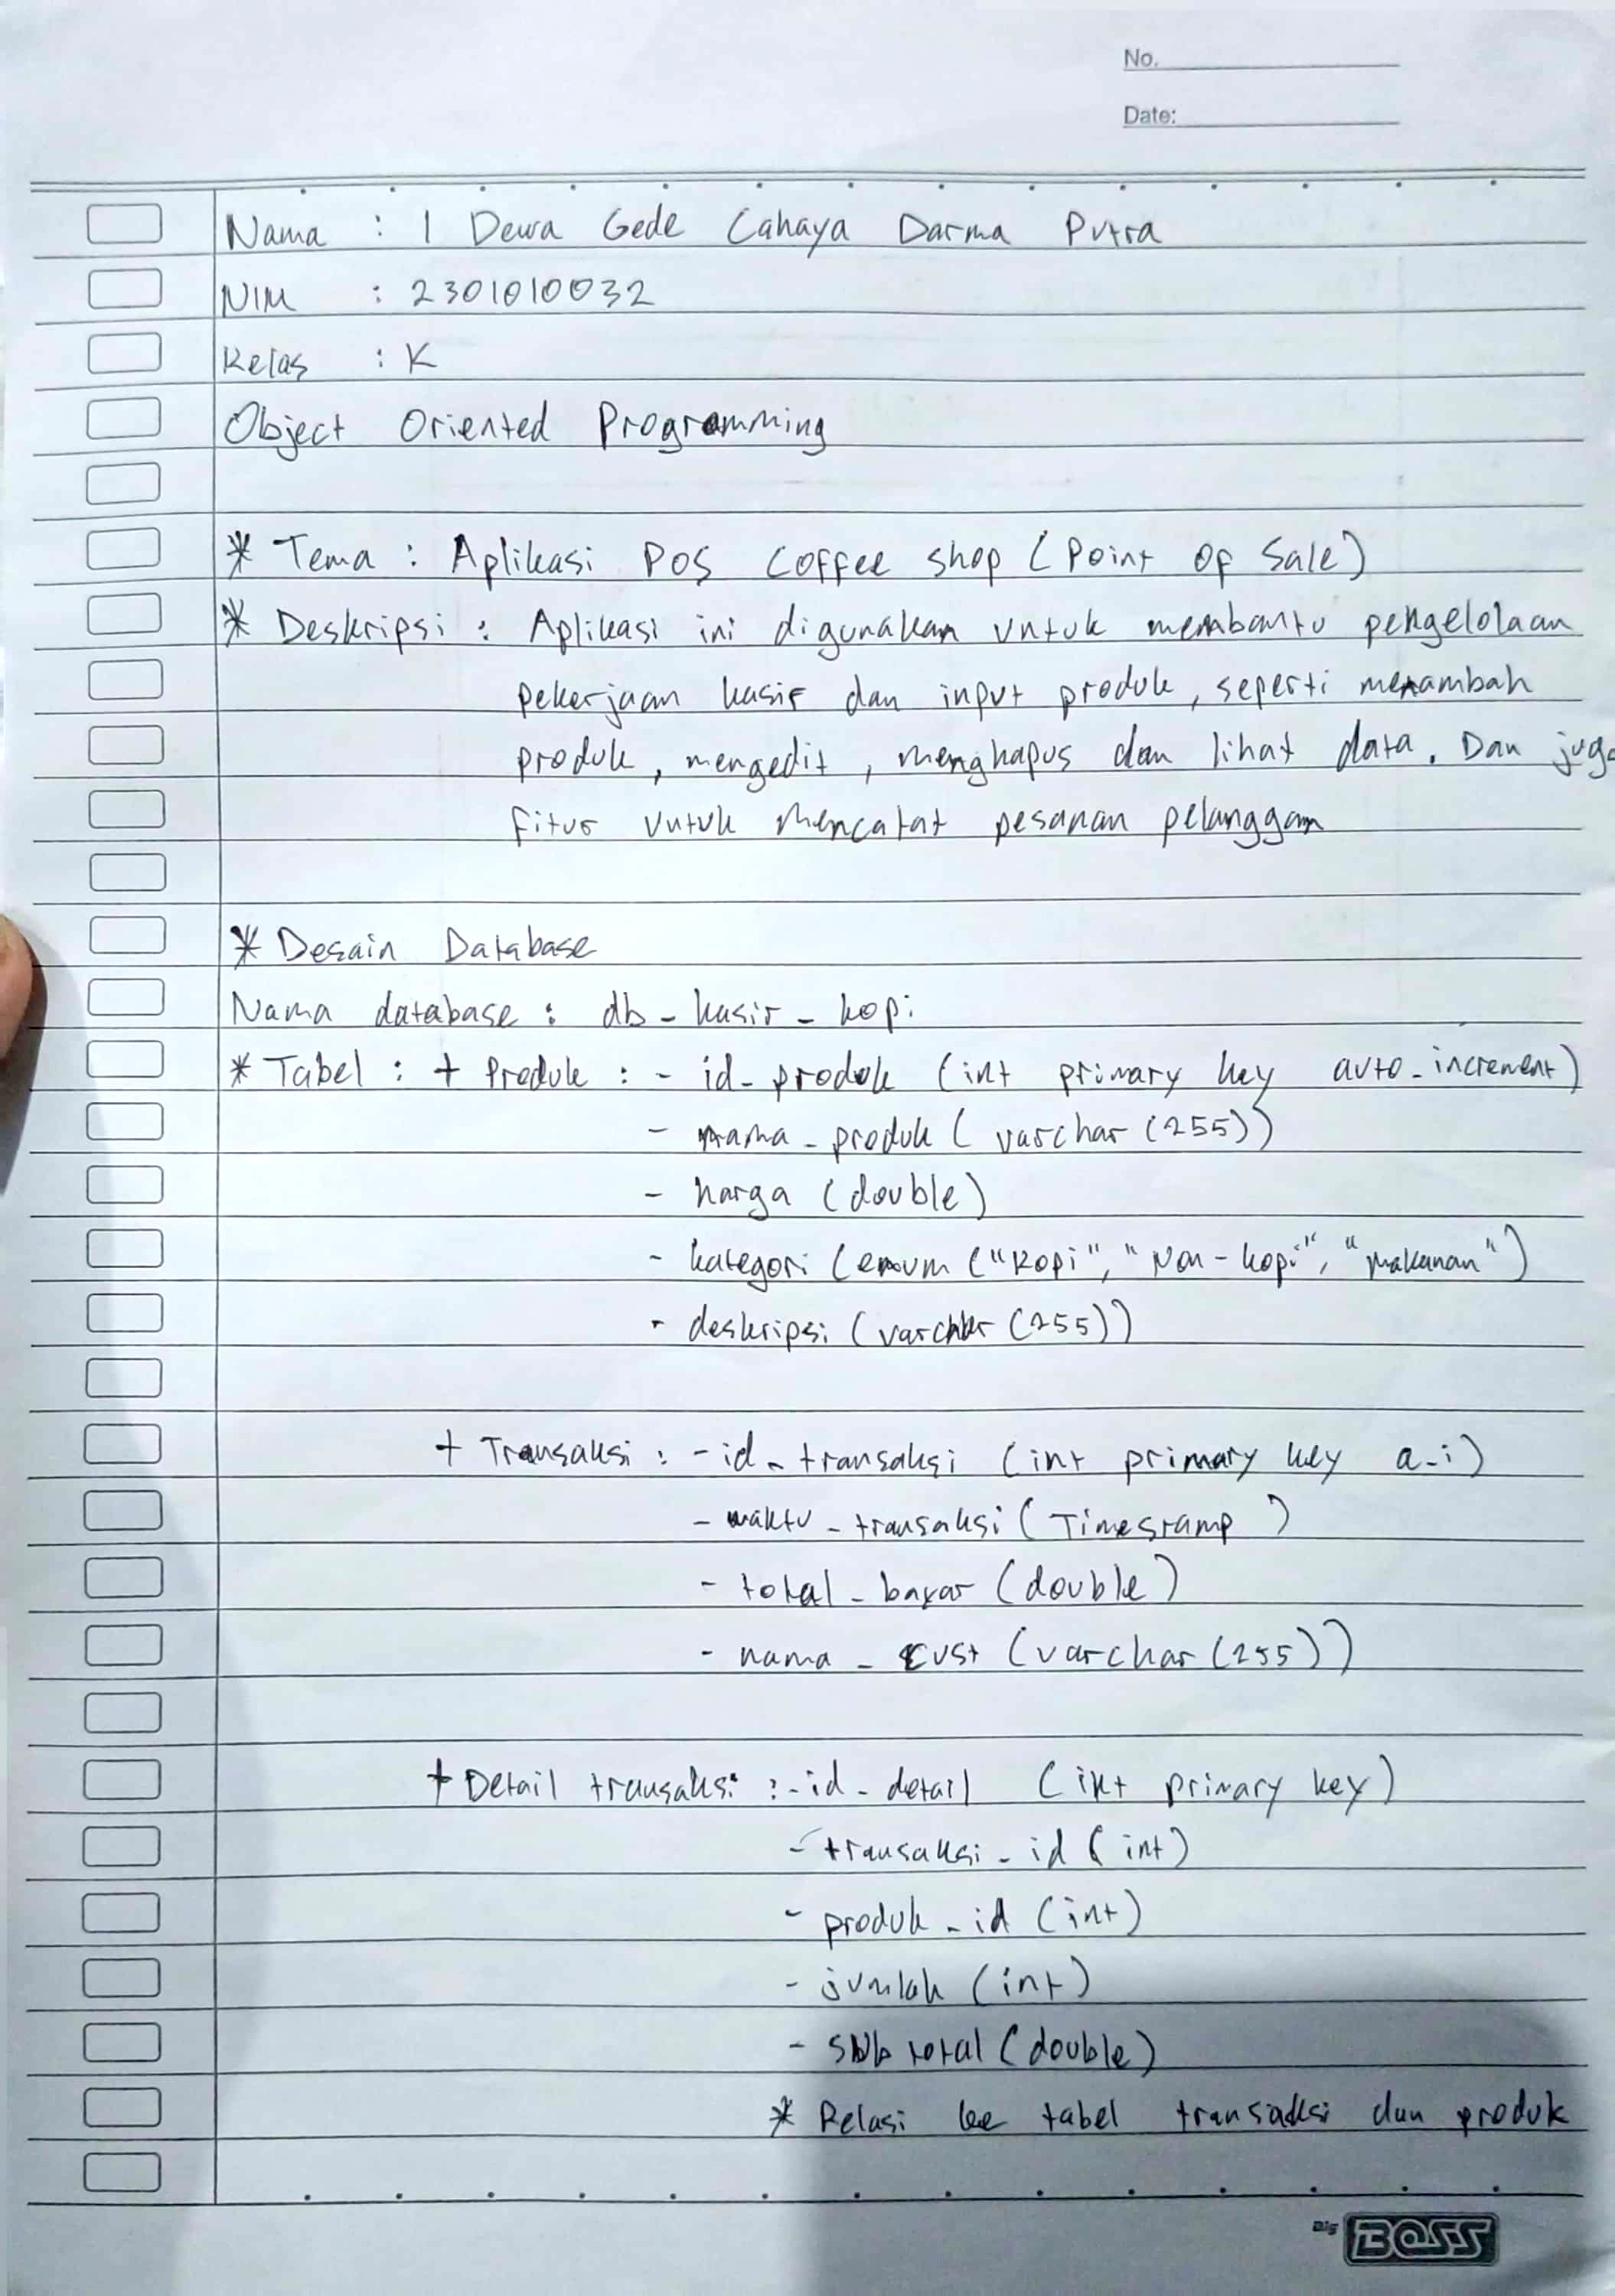 No.
Date:
Nama : I Dewa Gede Cahaya Darma Putra
NIM : 2301010032
Kelas : K
Object Oriented Programming
* Tema : Aplikasi POS Coffee shop (Point Of Sale)
* Deskripsi : Aplikasi ini digunakan untuk membantu pengelolaan
pekerjaan kasir dan input produk, seperti menambah
produk, mengedit, menghapus dan lihat data. Dan juga
fitur untuk mencatat pesanan pelanggan
* Desain Database
Nama database : db_kasir_kopi
* Tabel : + Produk : - id_produk (int primary key auto_increment)
- nama_produk (varchar (255))
- harga (double)
- kategori (enum ("Kopi", "Non-kopi", "makanan")
- deskripsi (varchar (255))
+ Transaksi : - id_transaksi (int primary key a_i)
- waktu_transaksi (Timestamp)
- total_bayar (double)
- nama_cust (varchar (255))
+ Detail transaksi : - id_detail (int primary key)
- transaksi_id (int)
- produk_id (int)
- jumlah (int)
- sub total (double)
* Relasi ke tabel transaksi dan produk
Big BOSS